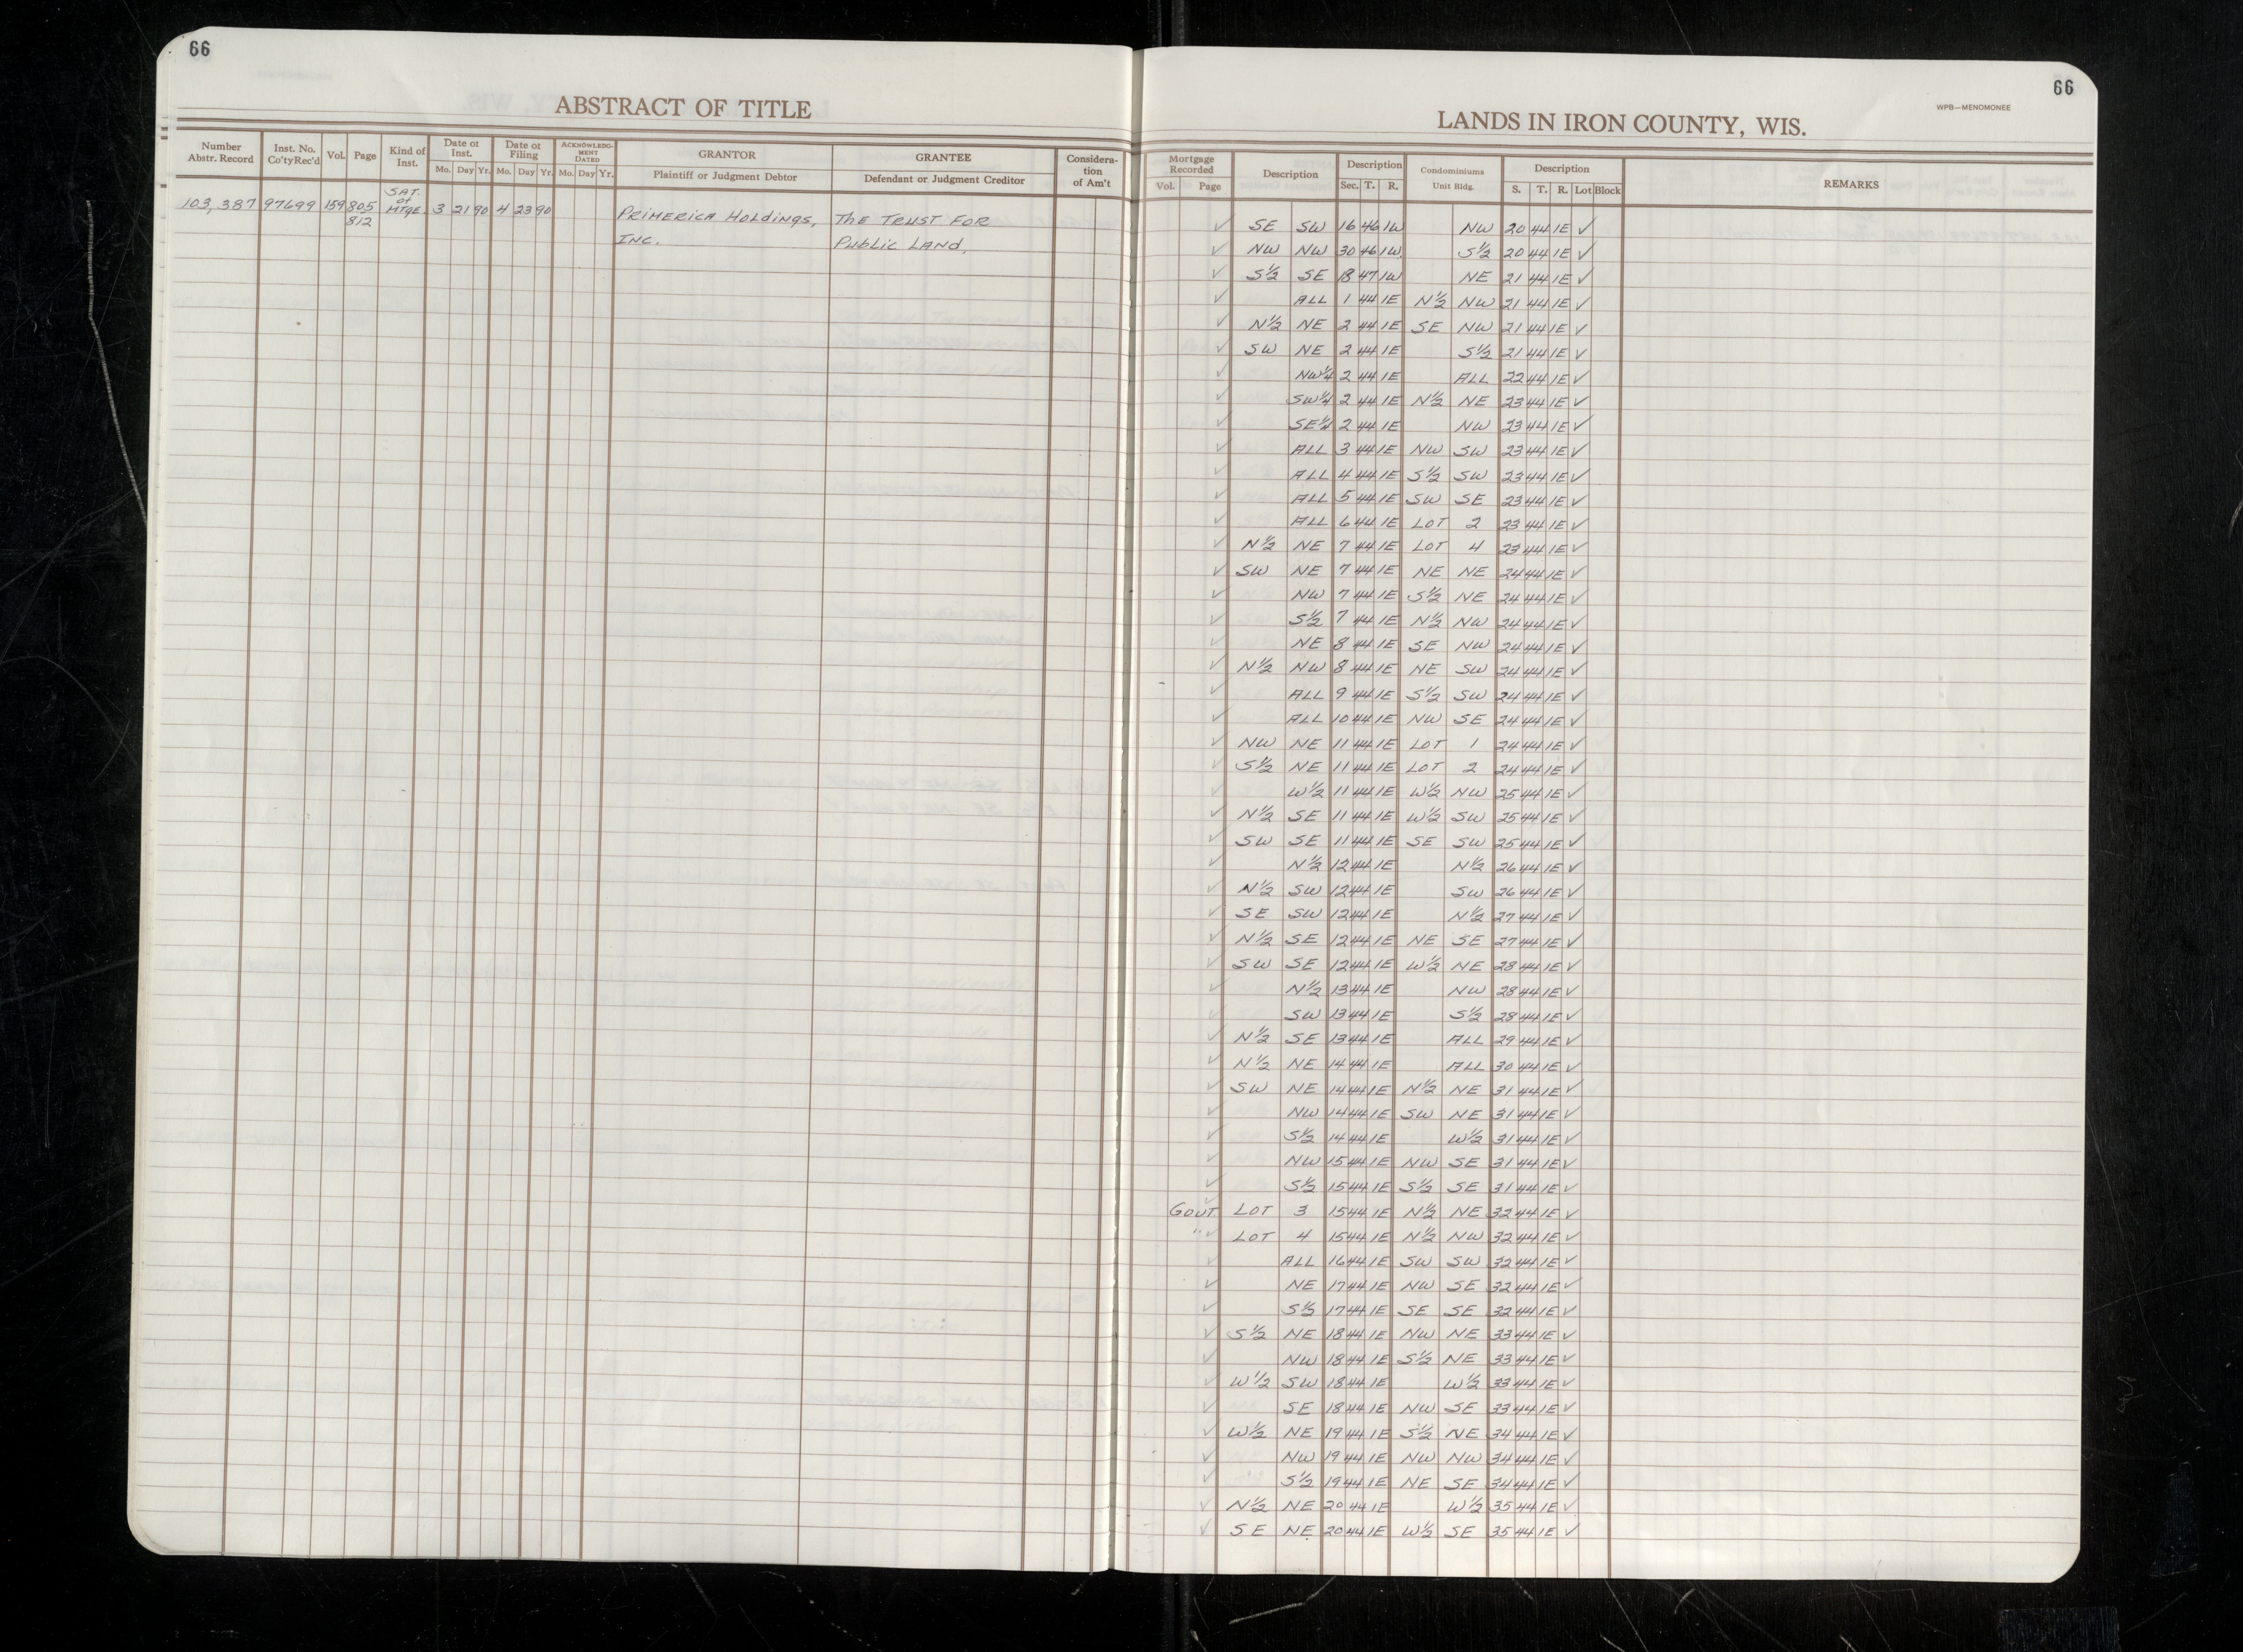 66
ABSTRACT OF TITLE
Number Abstr. Record | Inst. No. Co'ty Rec'd | Vol. | Page | Kind of Inst. | Date of Inst. Mo. Day Yr. | Date of Filing Mo. Day Yr. | ACKNOWLEDG-MENT DATED Mo. Day Yr. | GRANTOR Plaintiff or Judgment Debtor | GRANTEE Defendant or Judgment Creditor | Considera-tion of Am't
103,387 97699 159 805 812 SAT. of MTGE. 3 21 90 4 23 90 Primerica Holdings, The Trust For
Inc. Public Land,
66
WPB—MENOMONEE
LANDS IN IRON COUNTY, WIS.
Mortgage Recorded Vol. Page | Description | Description Sec. T. R. | Condominiums Unit Bldg. | Description S. T. R. Lot Block | REMARKS
✓ SE SW 16 46 1W NW 20 44 1E ✓
✓ NW NW 30 46 1W S½ 20 44 1E ✓
✓ S½ SE 18 47 1W NE 21 44 1E ✓
✓ ALL 1 44 1E N½ NW 21 44 1E ✓
✓ N½ NE 2 44 1E SE NW 21 44 1E ✓
✓ SW NE 2 44 1E S½ 21 44 1E ✓
✓ NW¼ 2 44 1E ALL 22 44 1E ✓
✓ SW¼ 2 44 1E N½ NE 23 44 1E ✓
✓ SE¼ 2 44 1E NW 23 44 1E ✓
✓ ALL 3 44 1E NW SW 23 44 1E ✓
✓ ALL 4 44 1E S½ SW 23 44 1E ✓
✓ ALL 5 44 1E SW SE 23 44 1E ✓
✓ ALL 6 44 1E LOT 2 23 44 1E ✓
✓ N½ NE 7 44 1E LOT 4 23 44 1E ✓
✓ SW NE 7 44 1E NE NE 24 44 1E ✓
✓ NW 7 44 1E S½ NE 24 44 1E ✓
✓ S½ 7 44 1E N½ NW 24 44 1E ✓
✓ NE 8 44 1E SE NW 24 44 1E ✓
✓ N½ NW 8 44 1E NE SW 24 44 1E ✓
✓ ALL 9 44 1E S½ SW 24 44 1E ✓
✓ ALL 10 44 1E NW SE 24 44 1E ✓
✓ NW NE 11 44 1E LOT 1 24 44 1E ✓
✓ S½ NE 11 44 1E LOT 2 24 44 1E ✓
✓ W½ 11 44 1E W½ NW 25 44 1E ✓
✓ N½ SE 11 44 1E W½ SW 25 44 1E ✓
✓ SW SE 11 44 1E SE SW 25 44 1E ✓
✓ N½ 12 44 1E N½ 26 44 1E ✓
✓ N½ SW 12 44 1E SW 26 44 1E ✓
✓ SE SW 12 44 1E N½ 27 44 1E ✓
✓ N½ SE 12 44 1E NE SE 27 44 1E ✓
✓ SW SE 12 44 1E W½ NE 28 44 1E ✓
✓ N½ 13 44 1E NW 28 44 1E ✓
✓ SW 13 44 1E S½ 28 44 1E ✓
✓ N½ SE 13 44 1E ALL 29 44 1E ✓
✓ N½ NE 14 44 1E ALL 30 44 1E ✓
✓ SW NE 14 44 1E N½ NE 31 44 1E ✓
✓ NW 14 44 1E SW NE 31 44 1E ✓
✓ S½ 14 44 1E W½ 31 44 1E ✓
✓ NW 15 44 1E NW SE 31 44 1E ✓
✓ S½ 15 44 1E S½ SE 31 44 1E ✓
GOVT ✓ LOT 3 15 44 1E N½ NE 32 44 1E ✓
" ✓ LOT 4 15 44 1E N½ NW 32 44 1E ✓
✓ ALL 16 44 1E SW SW 32 44 1E ✓
✓ NE 17 44 1E NW SE 32 44 1E ✓
✓ S½ 17 44 1E SE SE 32 44 1E ✓
✓ S½ NE 18 44 1E NW NE 33 44 1E ✓
✓ NW 18 44 1E S½ NE 33 44 1E ✓
✓ W½ SW 18 44 1E W½ 33 44 1E ✓
✓ SE 18 44 1E NW SE 33 44 1E ✓
✓ W½ NE 19 44 1E S½ NE 34 44 1E ✓
✓ NW 19 44 1E NW NW 34 44 1E ✓
✓ S½ 19 44 1E NE SE 34 44 1E ✓
✓ N½ NE 20 44 1E W½ 35 44 1E ✓
✓ SE NE 20 44 1E W½ SE 35 44 1E ✓